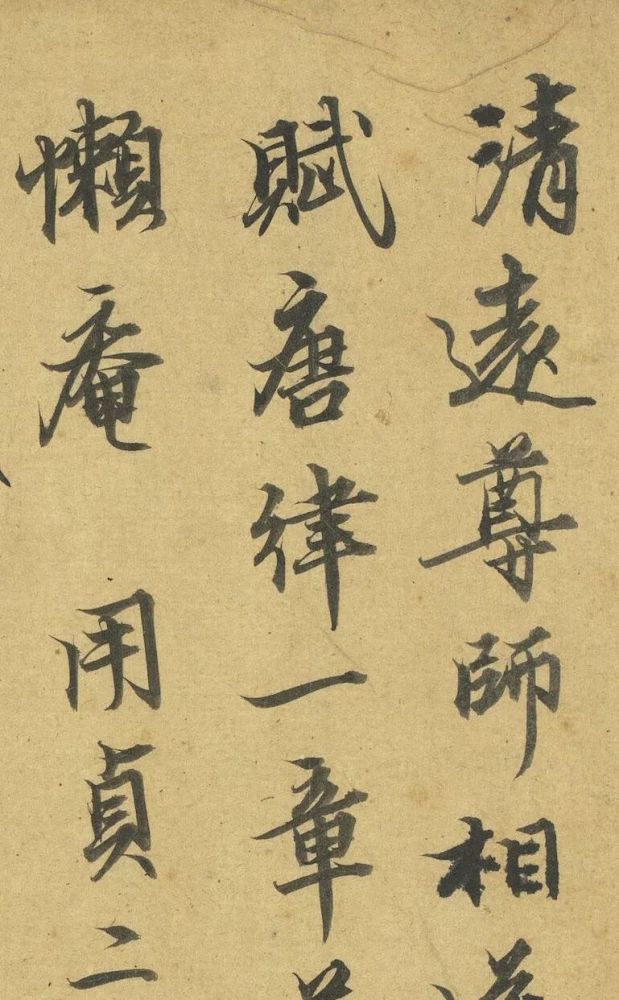 清遠尊師相
賦唐律一章
懶菴 用貞二